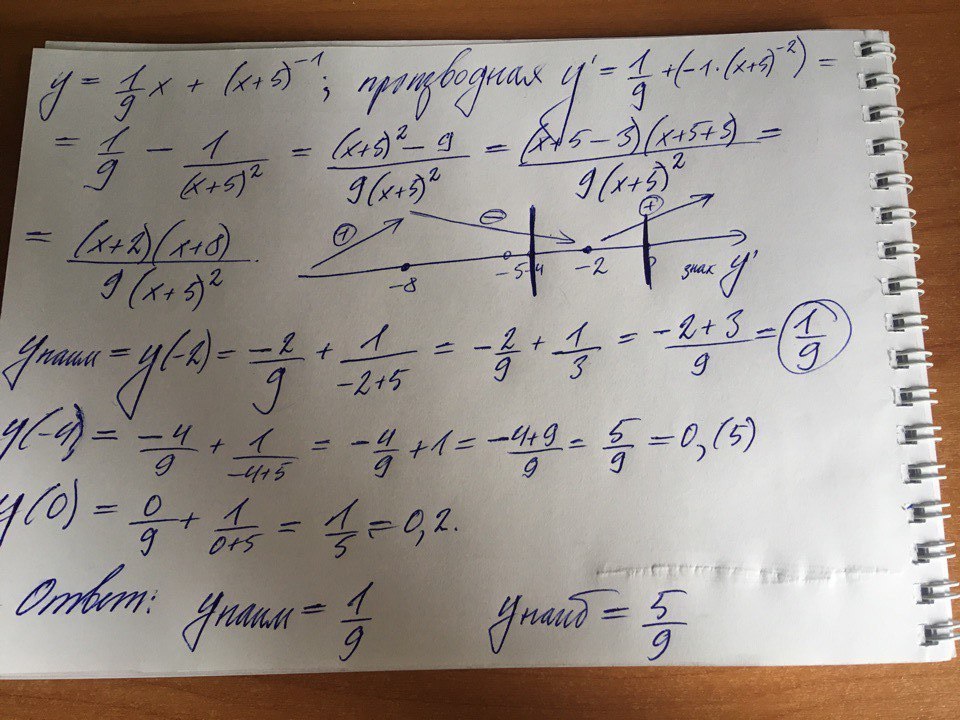 y = 1/9 x + (x+5)⁻¹; производная y' = 1/9 + (-1·(x+5)⁻²) =
= 1/9 − 1/(x+5)² = ((x+5)² − 9)/(9(x+5)²) = ((x+5−3)(x+5+3))/(9(x+5)²) =
= ((x+2)(x+8))/(9(x+5)²).
+ − +
−8 −5 −4 −2 0 знак y'
yнаим = y(−2) = −2/9 + 1/(−2+5) = −2/9 + 1/3 = (−2+3)/9 = 1/9
y(−4) = −4/9 + 1/(−4+5) = −4/9 + 1 = (−4+9)/9 = 5/9 = 0,(5)
y(0) = 0/9 + 1/(0+5) = 1/5 = 0,2.
Ответ: yнаим = 1/9 yнаиб = 5/9